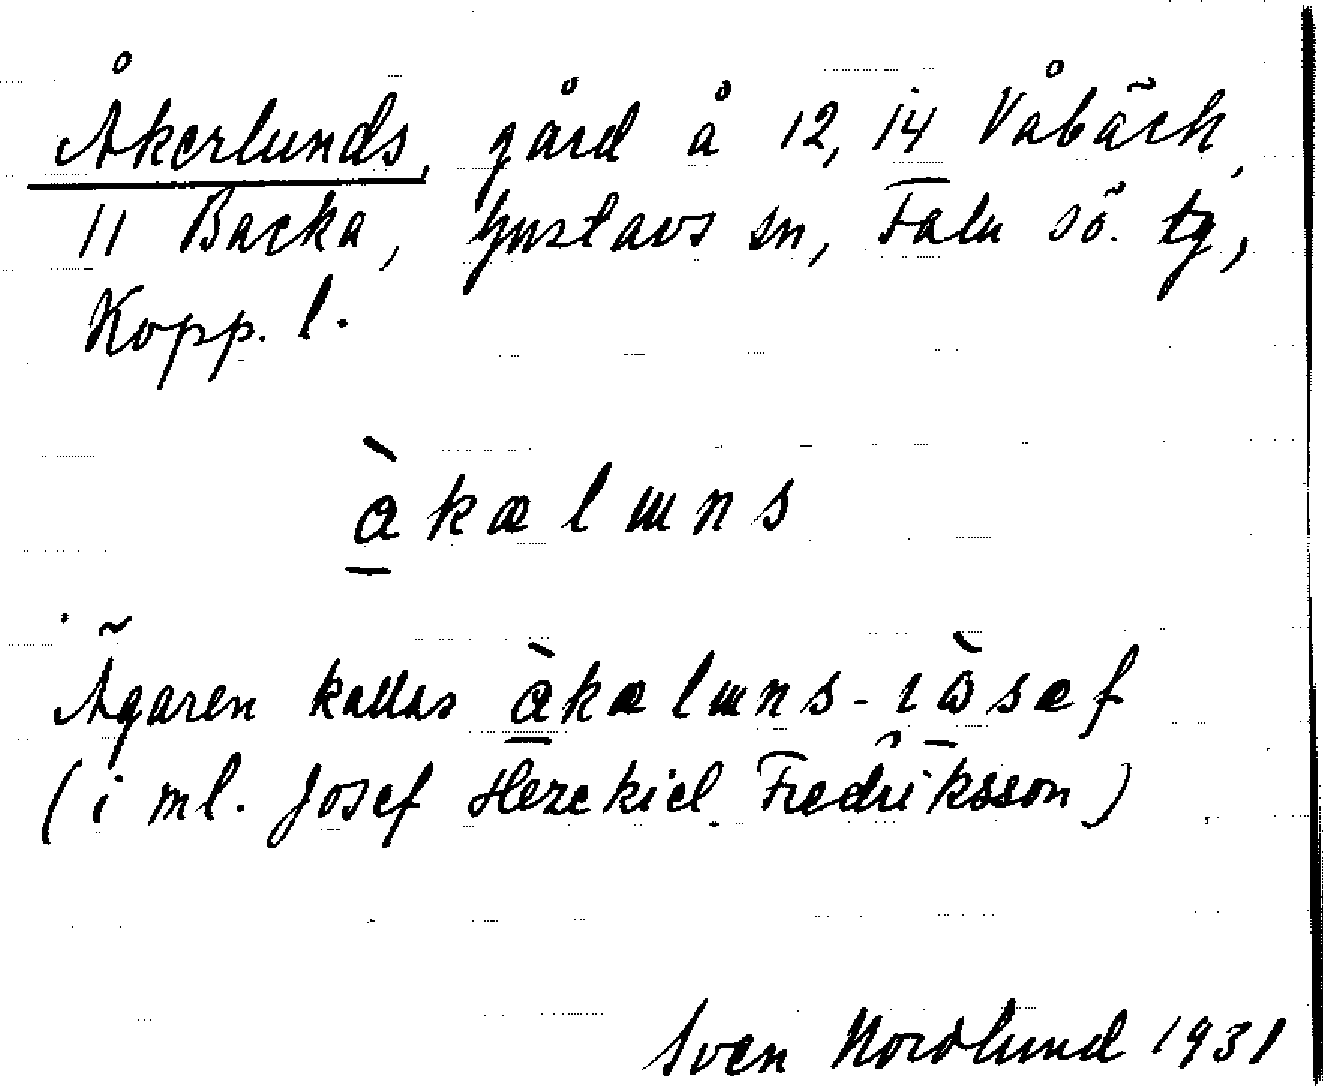 Åkerlunds, gård å 12, 14 Våbäck,
11 Backa, Gustavs sn, Falu sö. tg,
Kopp. l.
àkælɯns
Ägaren kallas àkælɯns-ıòsæf
(i ml. Josef Hezekiel Fredriksson)
Sven Nordlund 1931